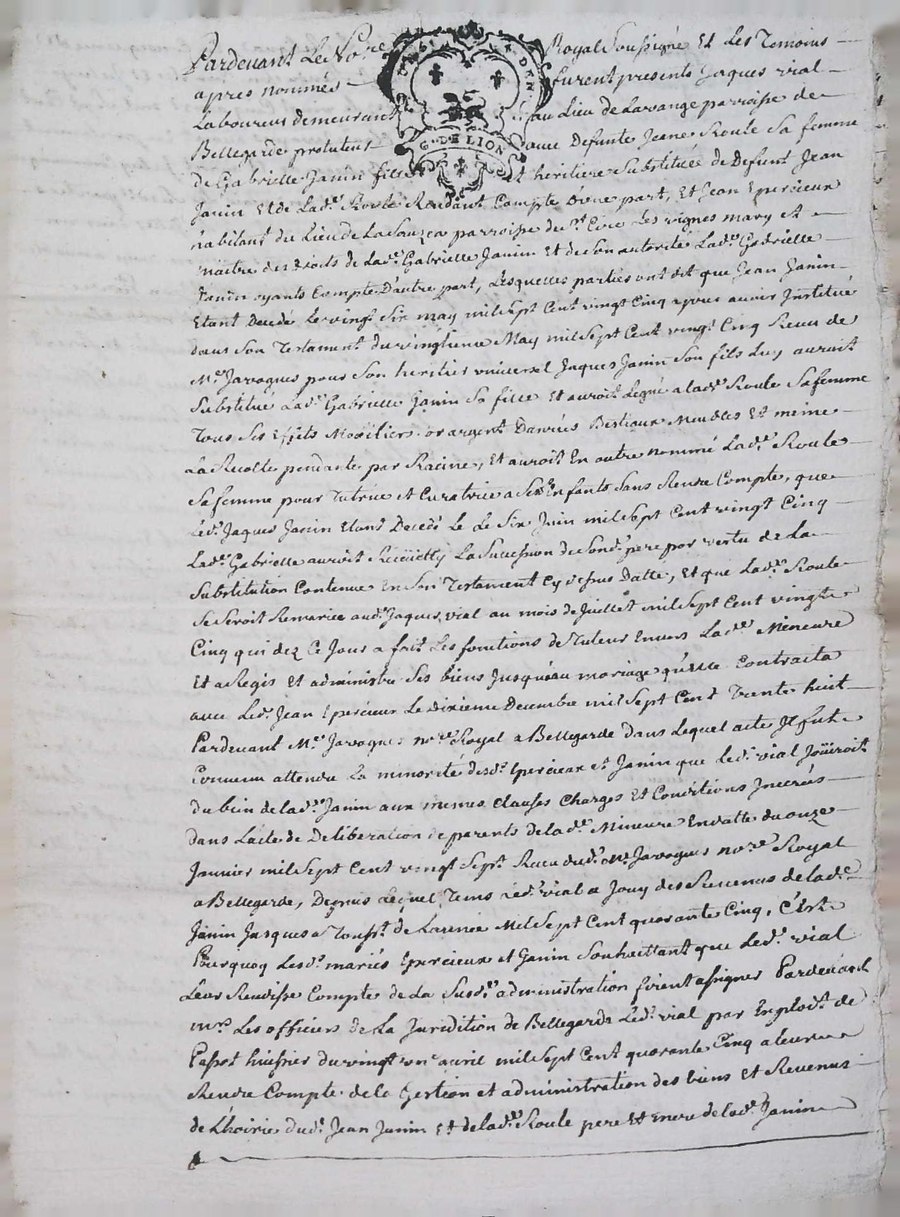 Pardevant Le No.re Royal Soussigné Et Les Temoins
apres nommés furent presents Jaques vial
Laboureur demeurant au Lieu de Lavange parroisse de
Bellegarde protuteur avec Deffunte Jeane Roule Sa femme
de Gabrielle Janin fille et heritiere Substituée de Defunt Jean
Janin Et de Lad.e Roule Rendant Compte d'une part, Et Jean Epercieux
habitant du Lieu de La parroisse de S.t Cire Les vignes mary et
maitre des droits de Lad.e Gabrielle Janin Et de Son autorité Lad.e Gabrielle
Janin oyants Compte D'autre part, Lesquelles parties ont dit que Jean Janin
Etant Decedé Le vingt Six may mil Sept Cent vingt Cinq apres avoir Institué
dans Son Testament du vingtieme May mil Sept Cent vingt Cinq Receu de
M.e Javogues pour Son heritier universel Jaques Janin Son fils Luy auroit
Substitué Lad.e Gabrielle Janin Sa fille Et auroit Legué a Lad.e Roule Sa femme
Tous Ses Effets Mobiliers or argent Danrées Bestiaux Meubles Et meme
La Recolte pendante par Racine, Et auroit En outre nommé Lad.e Roule
Sa femme pour Tutrice et Curatrice a Ses Enfants Sans Rendre Compte, que
Led. Jaques Janin Etant Decedé Le Le Six Juin mil Sept Cent vingt Cinq
Lad.e Gabrielle auroit Recüeilly La Succession de Sond. pere par vertu de La
Substitution Contenue En Son Testament Cy dessus Datté, Et que Lad.e Roule
Se Seroit Remariée aud. Jaques vial au mois de Juillet mil Sept Cent vingt
Cinq qui dez Ce Jour a fait Les fonctions de Tuteur Envers Lad.e Mineure
Et a Regis Et administré Ses biens Jusqu'au mariage qu'elle Contracta
avec Led. Jean Epercieux Le Dixieme Decembre mil Sept Cent Trente huit
Pardevant M.e Javogues no.re Royal a Bellegarde dans Lequel acte Il fut
Convenu attendu La minorité desd. Epercieux Et Janin que Led. vial Joüiroit
du bien de Lad.e Janin aux memes Clauses Charges Et Conditions Inserés
dans L'acte de Deliberation de parents de Lad.e Mineure En datte du onze
Janvier mil Sept Cent vingt Sept Receu dud. M.e Javogues no.re Royal
a Bellegarde, Depuis Lequel Tems Led. vial a Jouy des Revenus de Lad.e
Janin Jusques a Touss.t de L'année Mil Sept Cent quarante Cinq, C'est
Pourquoy Lesd. mariés Epercieux et Janin Souhaittant que Led. vial
Leur Rendisse Compte de La Susd.e administration firent assigner Pardevant
M.rs Les officiers de La Juridition de Bellegarde Led. vial par Exploit de
Passot huissier du vingt un avril mil Sept Cent quarante Cinq a leur
Rendre Compte de la Gestion et administration des biens Et Revenus
de L'hoirie dud. Jean Janin Et de Lad.e Roule pere Et mere de Lad.e Janin
G. DE LION